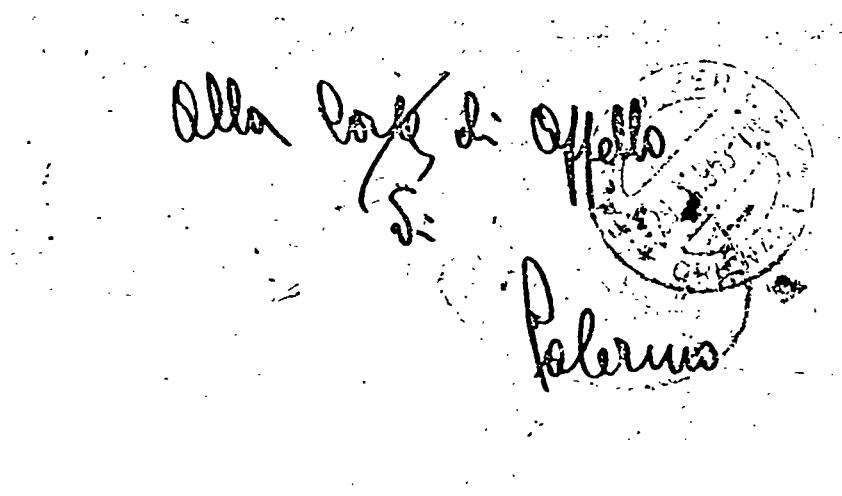 Alla Corte di Appello
Di
Palermo